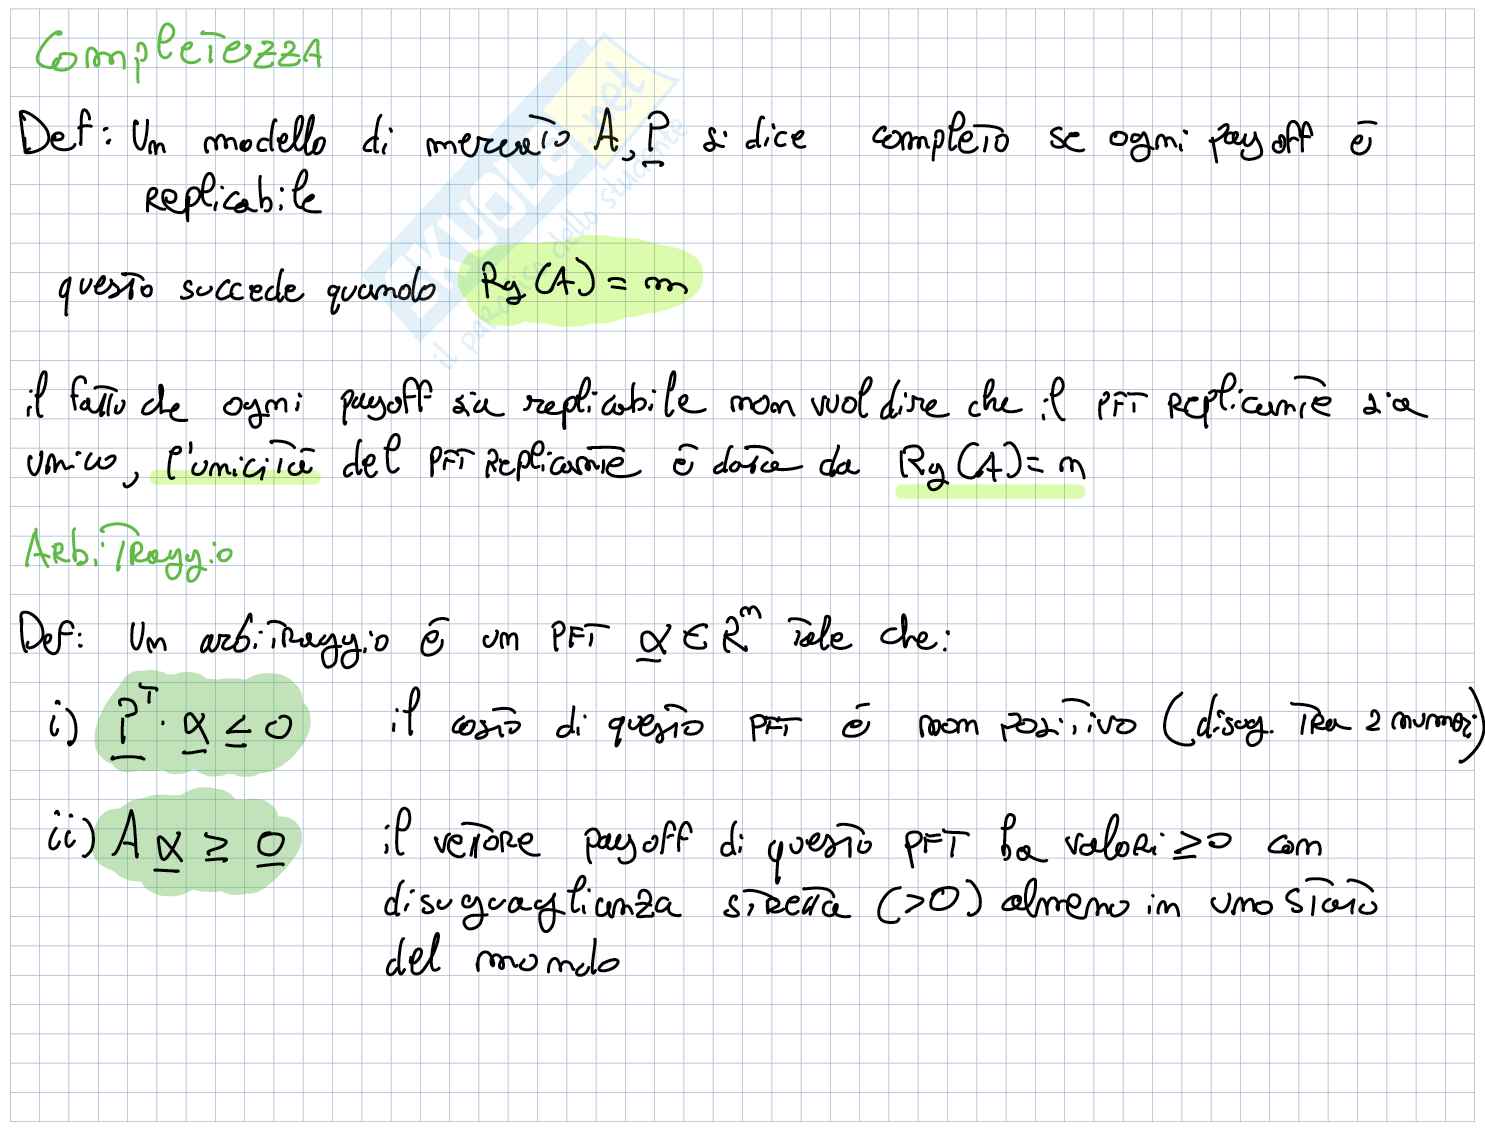 Completezza
Def: Un modello di mercato A, P si dice completo se ogni payoff è
replicabile
questo succede quando Rg(A) = m
il fatto che ogni payoff sia replicabile non vuol dire che il PFT replicante sia
unico, l'unicità del PFT replicante è data da Rg(A) = n
Arbitraggio
Def: Un arbitraggio è un PFT α ∈ R^n tale che:
i) P^T · α ≤ 0 il costo di questo PFT è non positivo (disug. tra 2 numeri)
ii) A α ≥ 0 il vettore payoff di questo PFT ha valori ≥ 0 con
disuguaglianza stretta (>0) almeno in uno stato
del mondo
SKUOLA.net
il paradiso dello studente